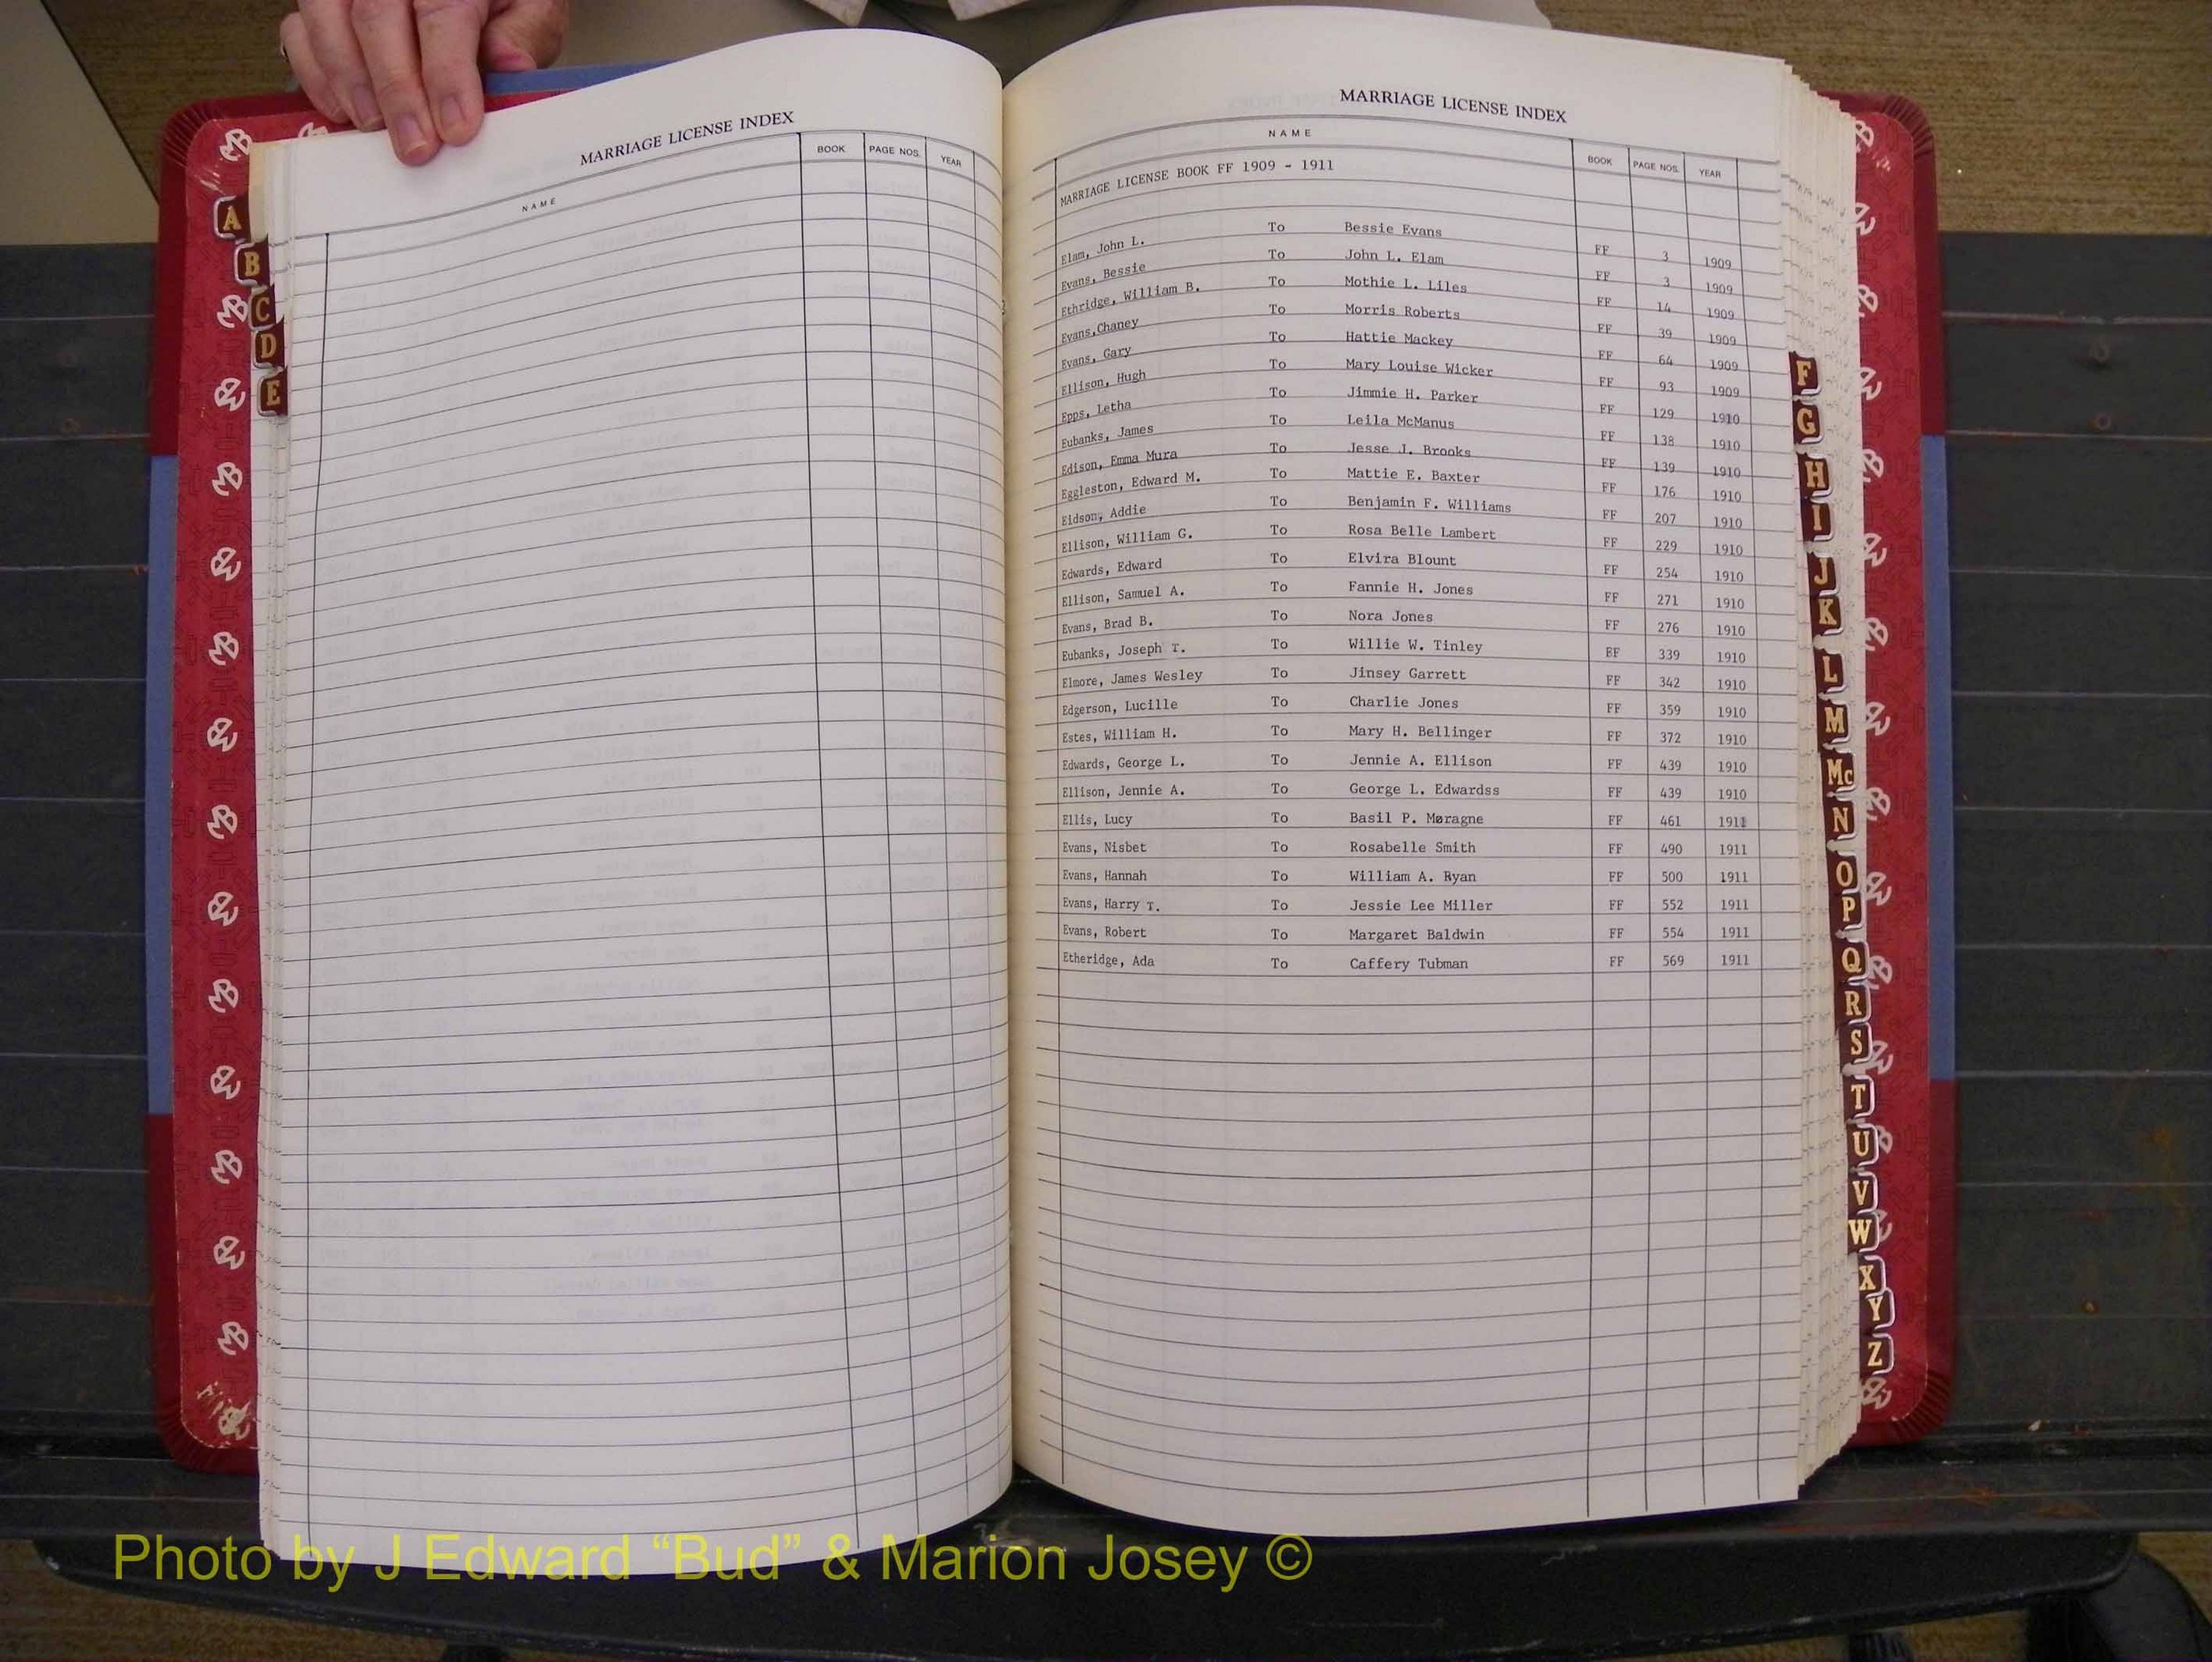 MARRIAGE LICENSE INDEX
NAME BOOK PAGE NOS. YEAR
A
B
C
D
E
MARRIAGE LICENSE INDEX
NAME BOOK PAGE NOS. YEAR
MARRIAGE LICENSE BOOK FF 1909 - 1911
Elam, John L. To Bessie Evans FF 3 1909
Evans, Bessie To John L. Elam FF 3 1909
Ethridge, William B. To Mothie L. Liles FF 14 1909
Evans,Chaney To Morris Roberts FF 39 1909
Evans, Gary To Hattie Mackey FF 64 1909
Ellison, Hugh To Mary Louise Wicker FF 93 1909
Epps, Letha To Jimmie H. Parker FF 129 1910
Eubanks, James To Leila McManus FF 138 1910
Edison, Emma Mura To Jesse J. Brooks FF 139 1910
Eggleston, Edward M. To Mattie E. Baxter FF 176 1910
Eidson, Addie To Benjamin F. Williams FF 207 1910
Ellison, William G. To Rosa Belle Lambert FF 229 1910
Edwards, Edward To Elvira Blount FF 254 1910
Ellison, Samuel A. To Fannie H. Jones FF 271 1910
Evans, Brad B. To Nora Jones FF 276 1910
Eubanks, Joseph T. To Willie W. Tinley BF 339 1910
Elmore, James Wesley To Jinsey Garrett FF 342 1910
Edgerson, Lucille To Charlie Jones FF 359 1910
Estes, William H. To Mary H. Bellinger FF 372 1910
Edwards, George L. To Jennie A. Ellison FF 439 1910
Ellison, Jennie A. To George L. Edwardss FF 439 1910
Ellis, Lucy To Basil P. Moragne FF 461 1911
Evans, Nisbet To Rosabelle Smith FF 490 1911
Evans, Hannah To William A. Ryan FF 500 1911
Evans, Harry T. To Jessie Lee Miller FF 552 1911
Evans, Robert To Margaret Baldwin FF 554 1911
Etheridge, Ada To Caffery Tubman FF 569 1911
F
G
H
I
J
K
L
M
Mc
N
O
P
Q
R
S
T
U
V
W
X
Y
Z
Photo by J Edward “Bud” & Marion Josey ©